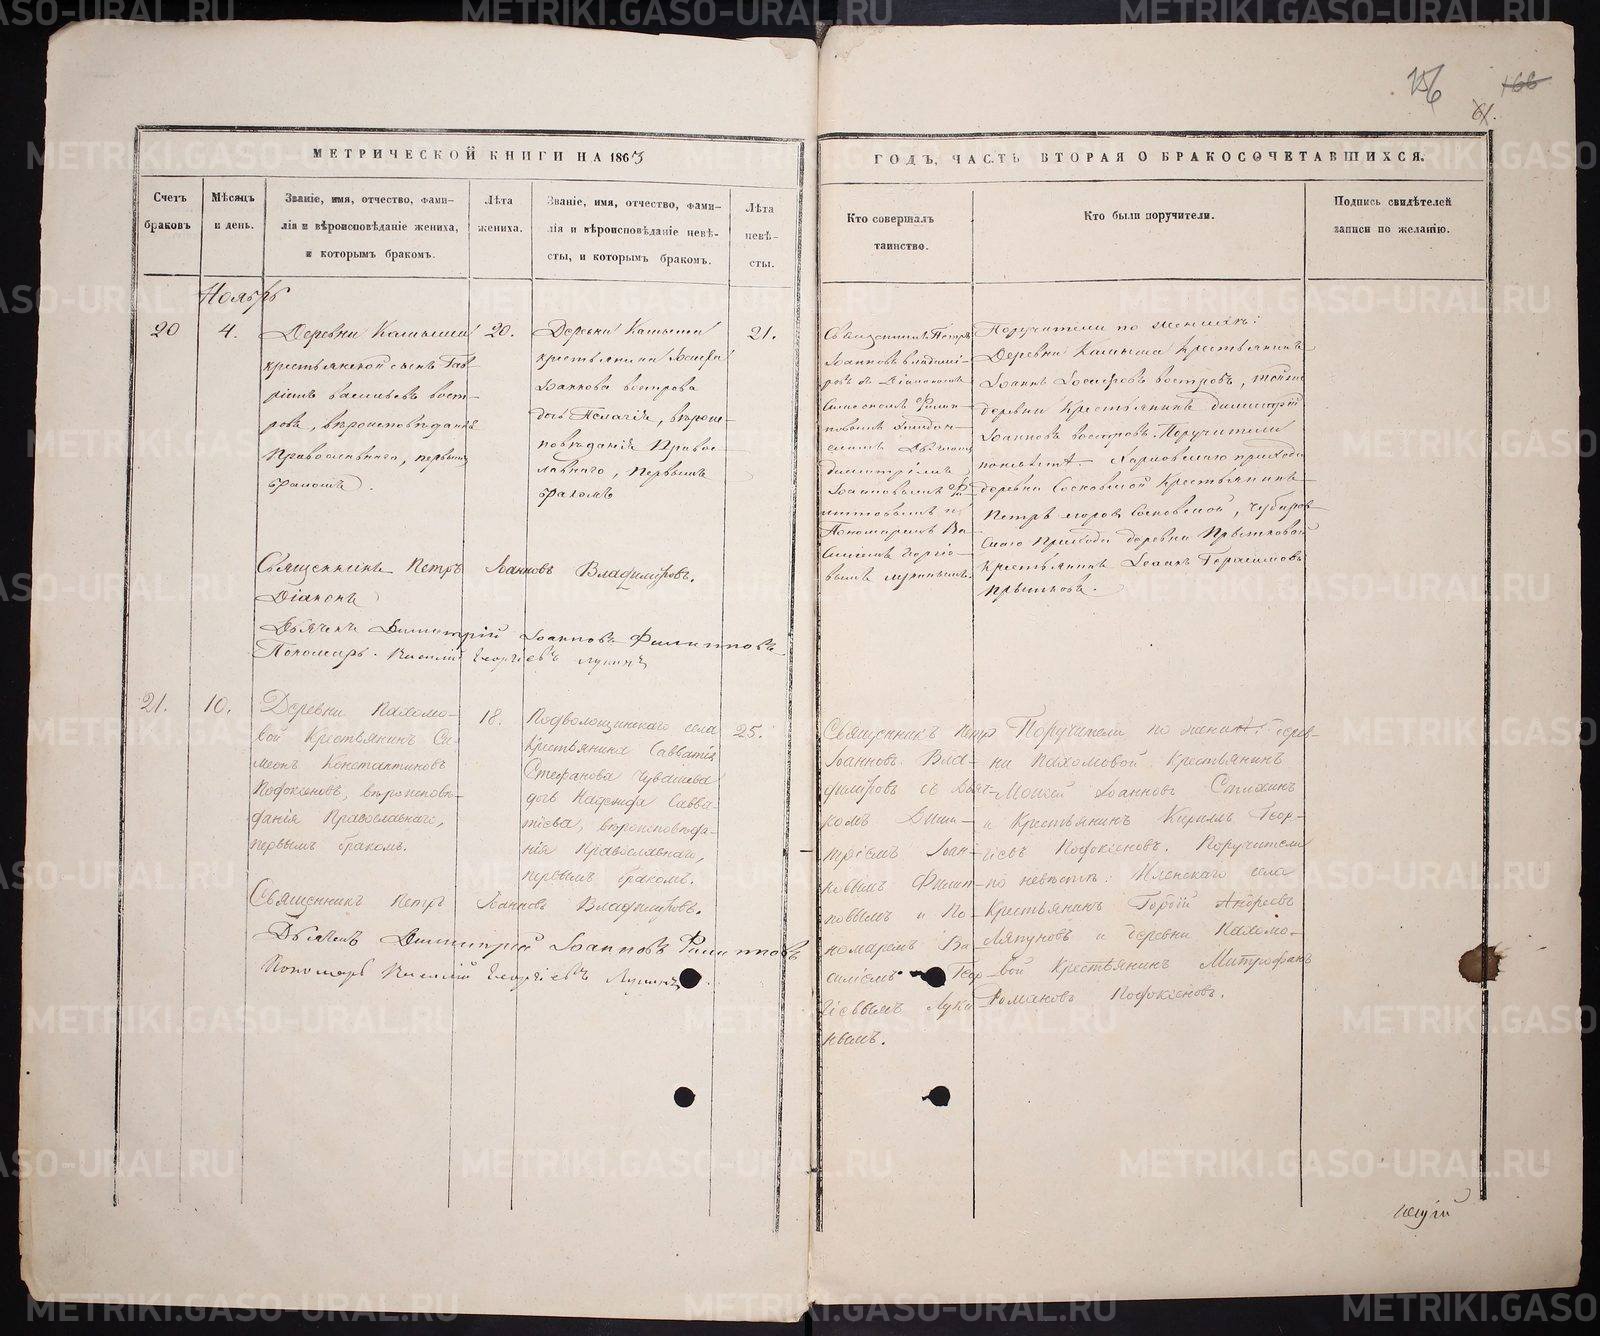 156
166
61.
МЕТРИЧЕСКОЙ КНИГИ НА 1863
ГОДЪ, ЧАСТЬ ВТОРАЯ О БРАКОСОЧЕТАВШИХСЯ.
Счетъ браковъ
Мѣсяцъ и день.
Званіе, имя, отчество, фами-
лія и вѣроисповѣданіе жениха,
и которымъ бракомъ.
Лѣта жениха.
Званіе, имя, отчество, фами-
лія и вѣроисповѣданіе невѣ-
сты, и которымъ бракомъ.
Лѣта невѣ-
сты.
Кто совершалъ
таинство.
Кто были поручители.
Подпись свидѣтелей
записи по желанію.
Ноябрь
20
4.
Деревни Камыша
крестьянской сынъ Гав-
ріилъ Васильевъ Вост-
ровъ, вѣроисповѣданія
Православнаго, первымъ
бракомъ.
20.
Деревни Камыша
крестьянина Іосифа
Іоаннова Вострова
дочь Пелагія, вѣроис-
повѣданія Правос-
лавнаго, первымъ
бракомъ
21.
Священникъ Петръ
Іоанновъ Владими-
ровъ съ Діакономъ
Дьячкомъ
Димитріемъ
Іоанновымъ Фи-
липповымъ и
Пономаремъ Ва-
силіемъ Георгіе-
вымъ Лукинымъ.
Поручители по женихѣ:
Деревни Камыша Крестьянинъ
Іоаннъ Іосифовъ Востровъ, той же
деревни Крестьянинъ Димитрій
Іоанновъ Востровъ. Поручители
по невѣстѣ. прихода
деревни Сосновской Крестьянинъ
Петръ Сосновской,
скаго прихода деревни Прытковой
Крестьянинъ Іоаннъ Герасимовъ
Прытковъ.
Священникъ Петръ Іоанновъ Владиміровъ.
Діаконъ
Дьячекъ Димитрій Іоанновъ Филипповъ
Пономарь Василій Георгіевъ Лукинъ
21.
10.
Деревни Пахомо-
вой Крестьянинъ Си-
меонъ Константиновъ
Пофоксеновъ, вѣроисповѣ-
данія Православнаго,
первымъ бракомъ.
18.
Подволошинскаго села
Крестьянина Савватія
Стефанова Чувашева
дочь Надежда Савва-
тіева, вѣроисповѣда-
нія Православнаго,
первымъ бракомъ.
25.
Священникъ Петръ
Іоанновъ Вла-
диміровъ съ Дьяч-
комъ Дими-
тріемъ Іоан-
новымъ Филип-
повымъ и По-
номаремъ Ва-
силіемъ Геор-
гіевымъ Луки-
нымъ.
Поручители по женихѣ: дерев-
ни Пахомовой Крестьянинъ
Моисей Іоанновъ Стихинъ
и Крестьянинъ Кириллъ Геор-
гіевъ Пофоксеновъ. Поручители
по невѣстѣ: Иленскаго села
Крестьянинъ Гордій Андреевъ
Ляпуновъ и деревни Пахомо-
вой Крестьянинъ Митрофанъ
Романовъ Пофоксеновъ.
Священникъ Петръ Іоанновъ Владиміровъ.
Дьячекъ Димитрій Іоанновъ Филипповъ
Пономарь Василій Георгіевъ Лукинъ.
METRIKI.GASO-URAL.RU